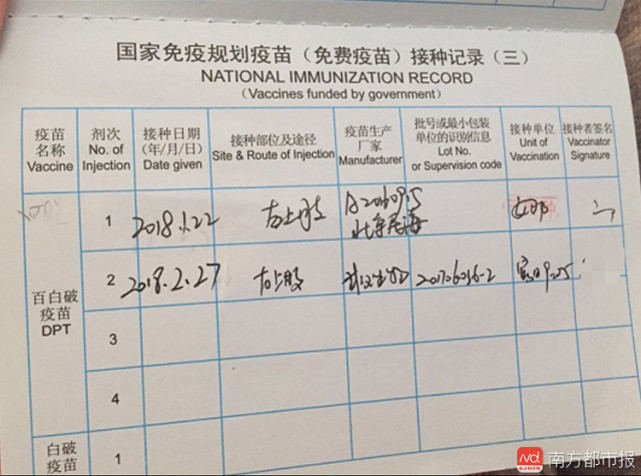 国家免疫规划疫苗（免费疫苗）接种记录（三）
NATIONAL IMMUNIZATION RECORD
(Vaccines funded by government)
疫苗
名称
Vaccine
剂次
No. of
Injection
接种日期
（年/月/日）
Date given
接种部位及途径
Site & Route of Injection
疫苗生产
厂家
Manufacturer
批号或最小包装
单位的识别信息
Lot No.
or Supervision code
接种单位
Unit of
Vaccination
接种者签名
Vaccinator
Signature
百白破
疫苗
DPT
1
2018.1.22
2
2018.2.27
3
4
白破
疫苗
1
南方都市报